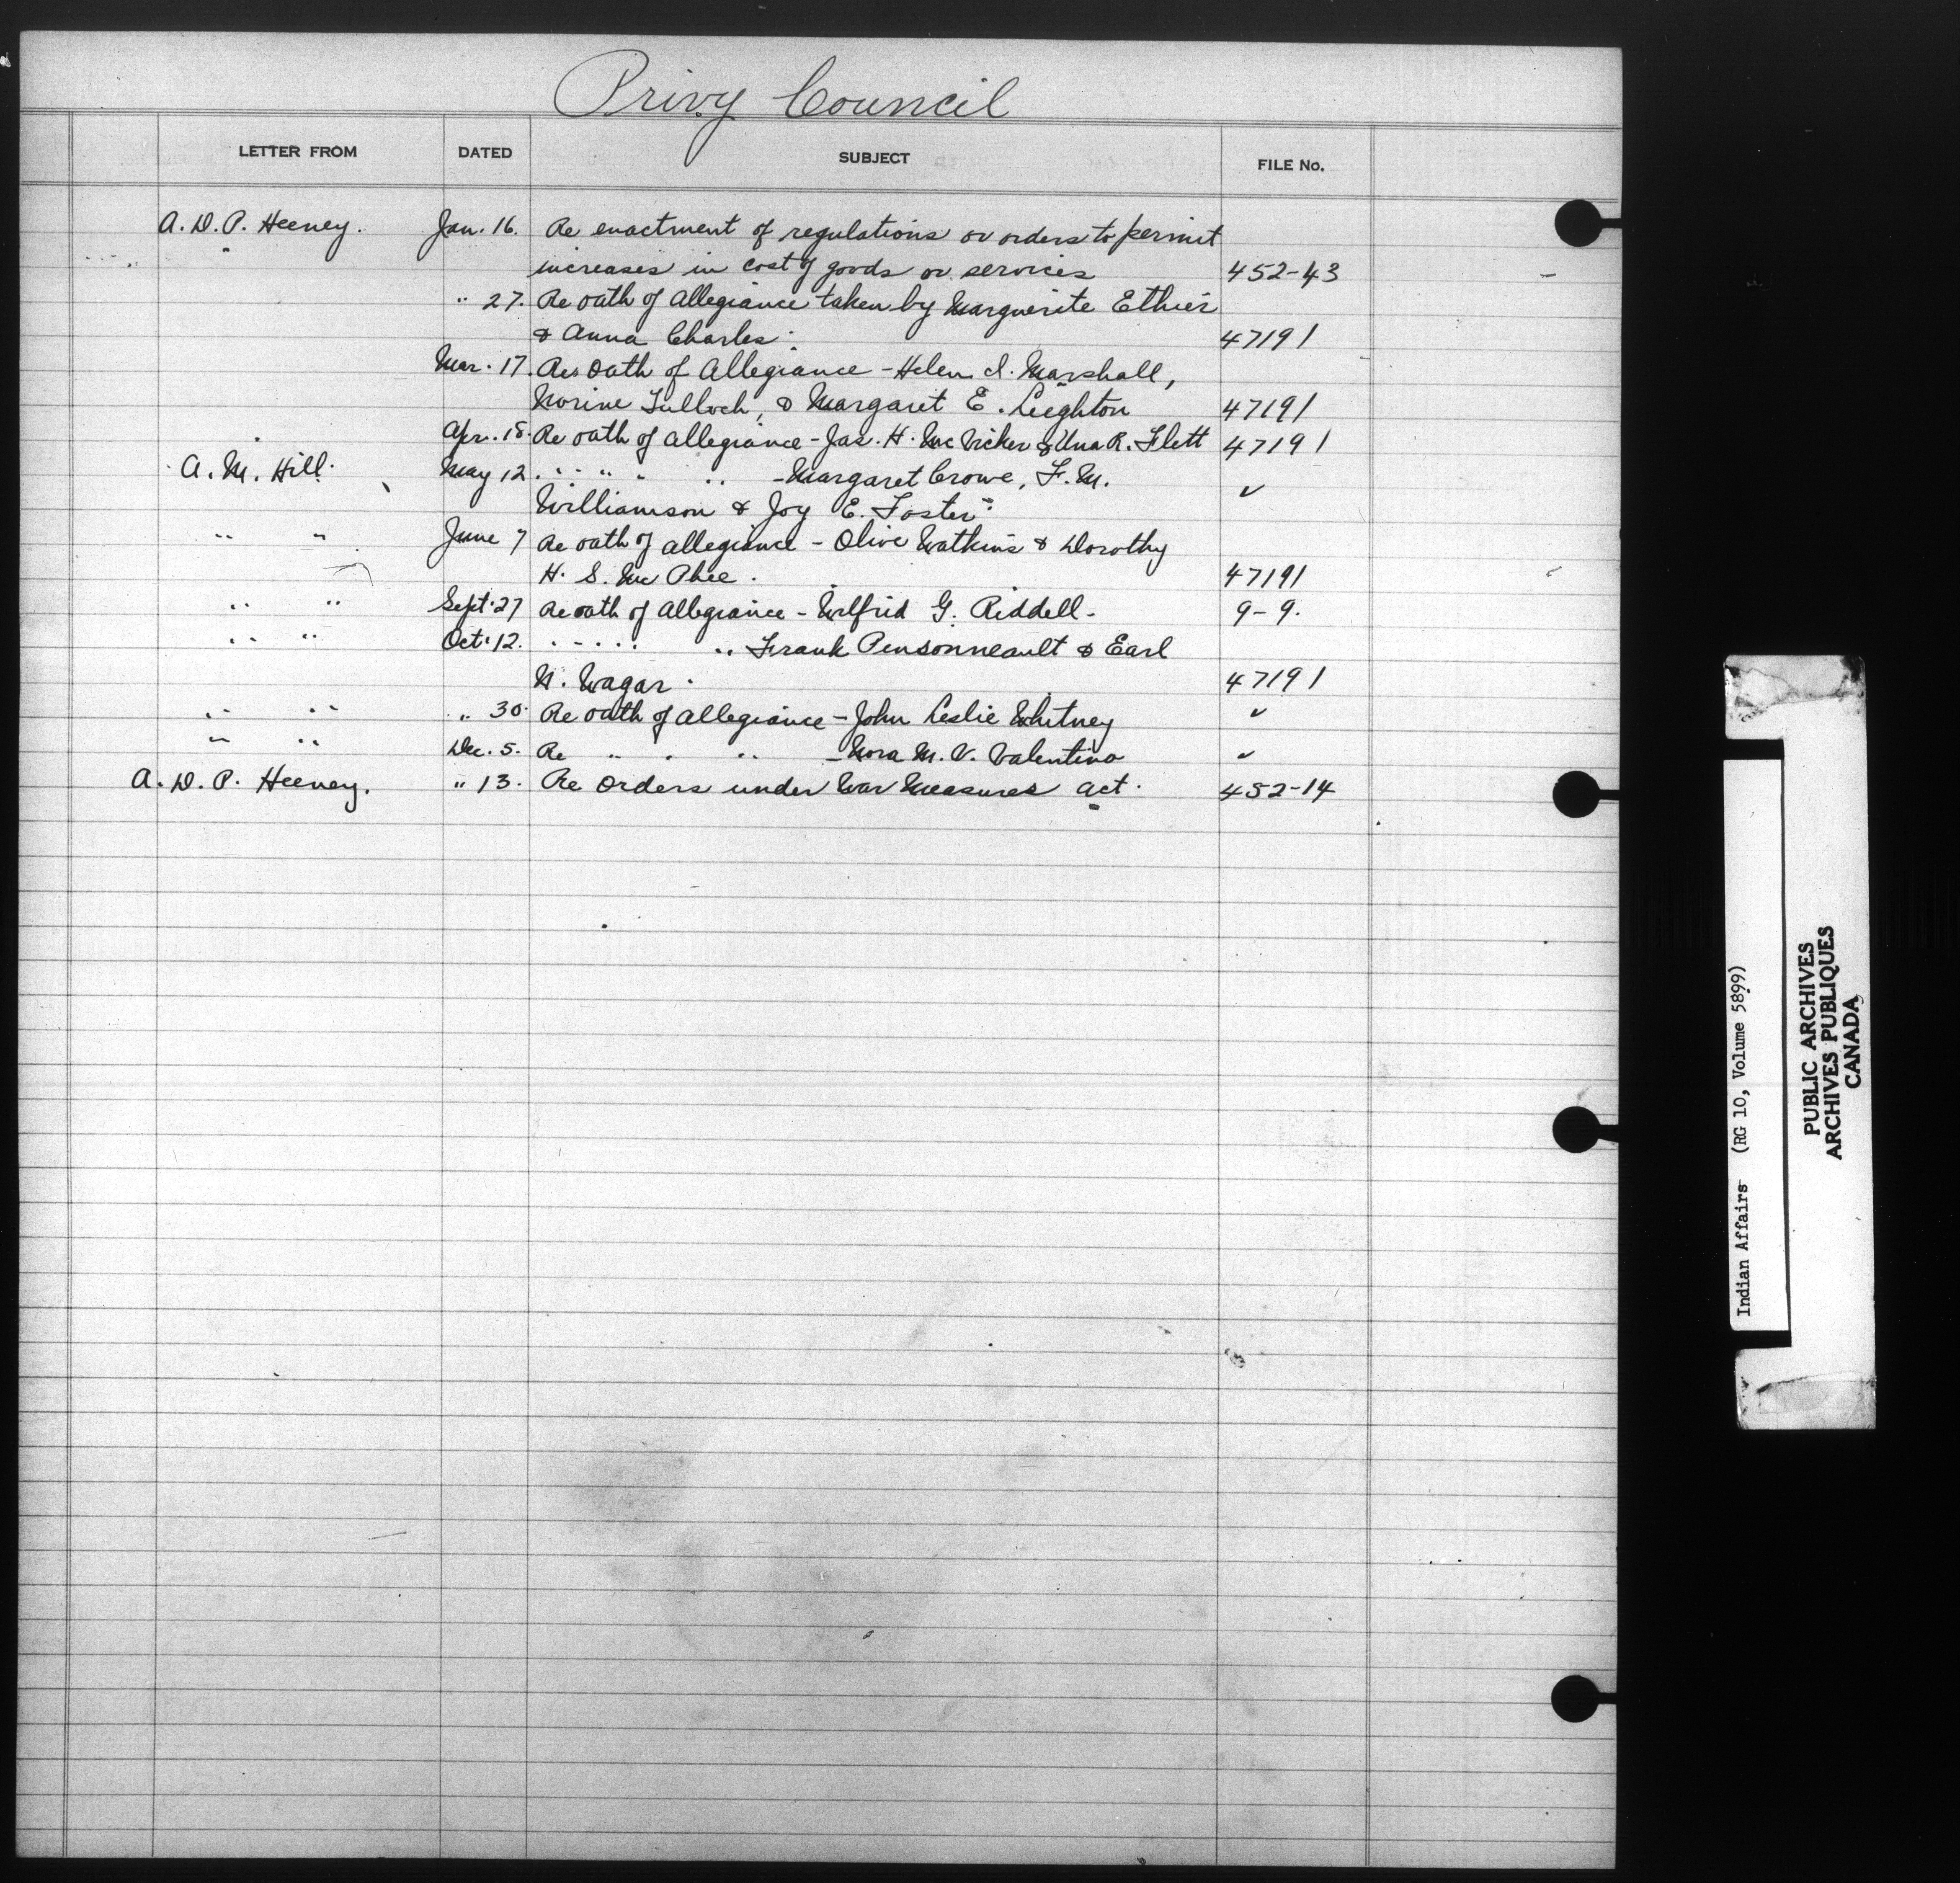 Privy Council
LETTER FROM DATED SUBJECT FILE No.
A. D. P. Heeney. Jan. 16. Re enactment of regulations or orders to permit
increases in cost of goods or services 452-43
" 27. Re oath of allegiance taken by Marguerite Ethier
& Anna Charles. 47191
Mar. 17. Re Oath of Allegiance - Helen I. Marshall,
Norine Tulloch, & Margaret E. Leighton 47191
Apr. 18. Re oath of allegiance - Jas. H. McVicker & Una R. Flett 47191
A. M. Hill. May 12. " " " " - Margaret Crowe, F. M. ✓
Williamson & Joy E. Foster
" " June 7 Re oath of allegiance - Olive Watkins & Dorothy
H. S. McPhee. 47191
" " Sept. 27 Re oath of allegiance - Wilfrid G. Riddell - 9-9.
" " Oct. 12. " " " " Frank Pensonneault & Earl
N. Wagar. 47191
" " " 30. Re oath of allegiance - John Leslie Whitney ✓
" " Dec. 5. Re " " " - Nora M. V. Valentino ✓
A. D. P. Heeney. " 13. Re Orders under War Measures Act. 452-14
Indian Affairs (RG 10, Volume 5899)
PUBLIC ARCHIVES
ARCHIVES PUBLIQUES
CANADA